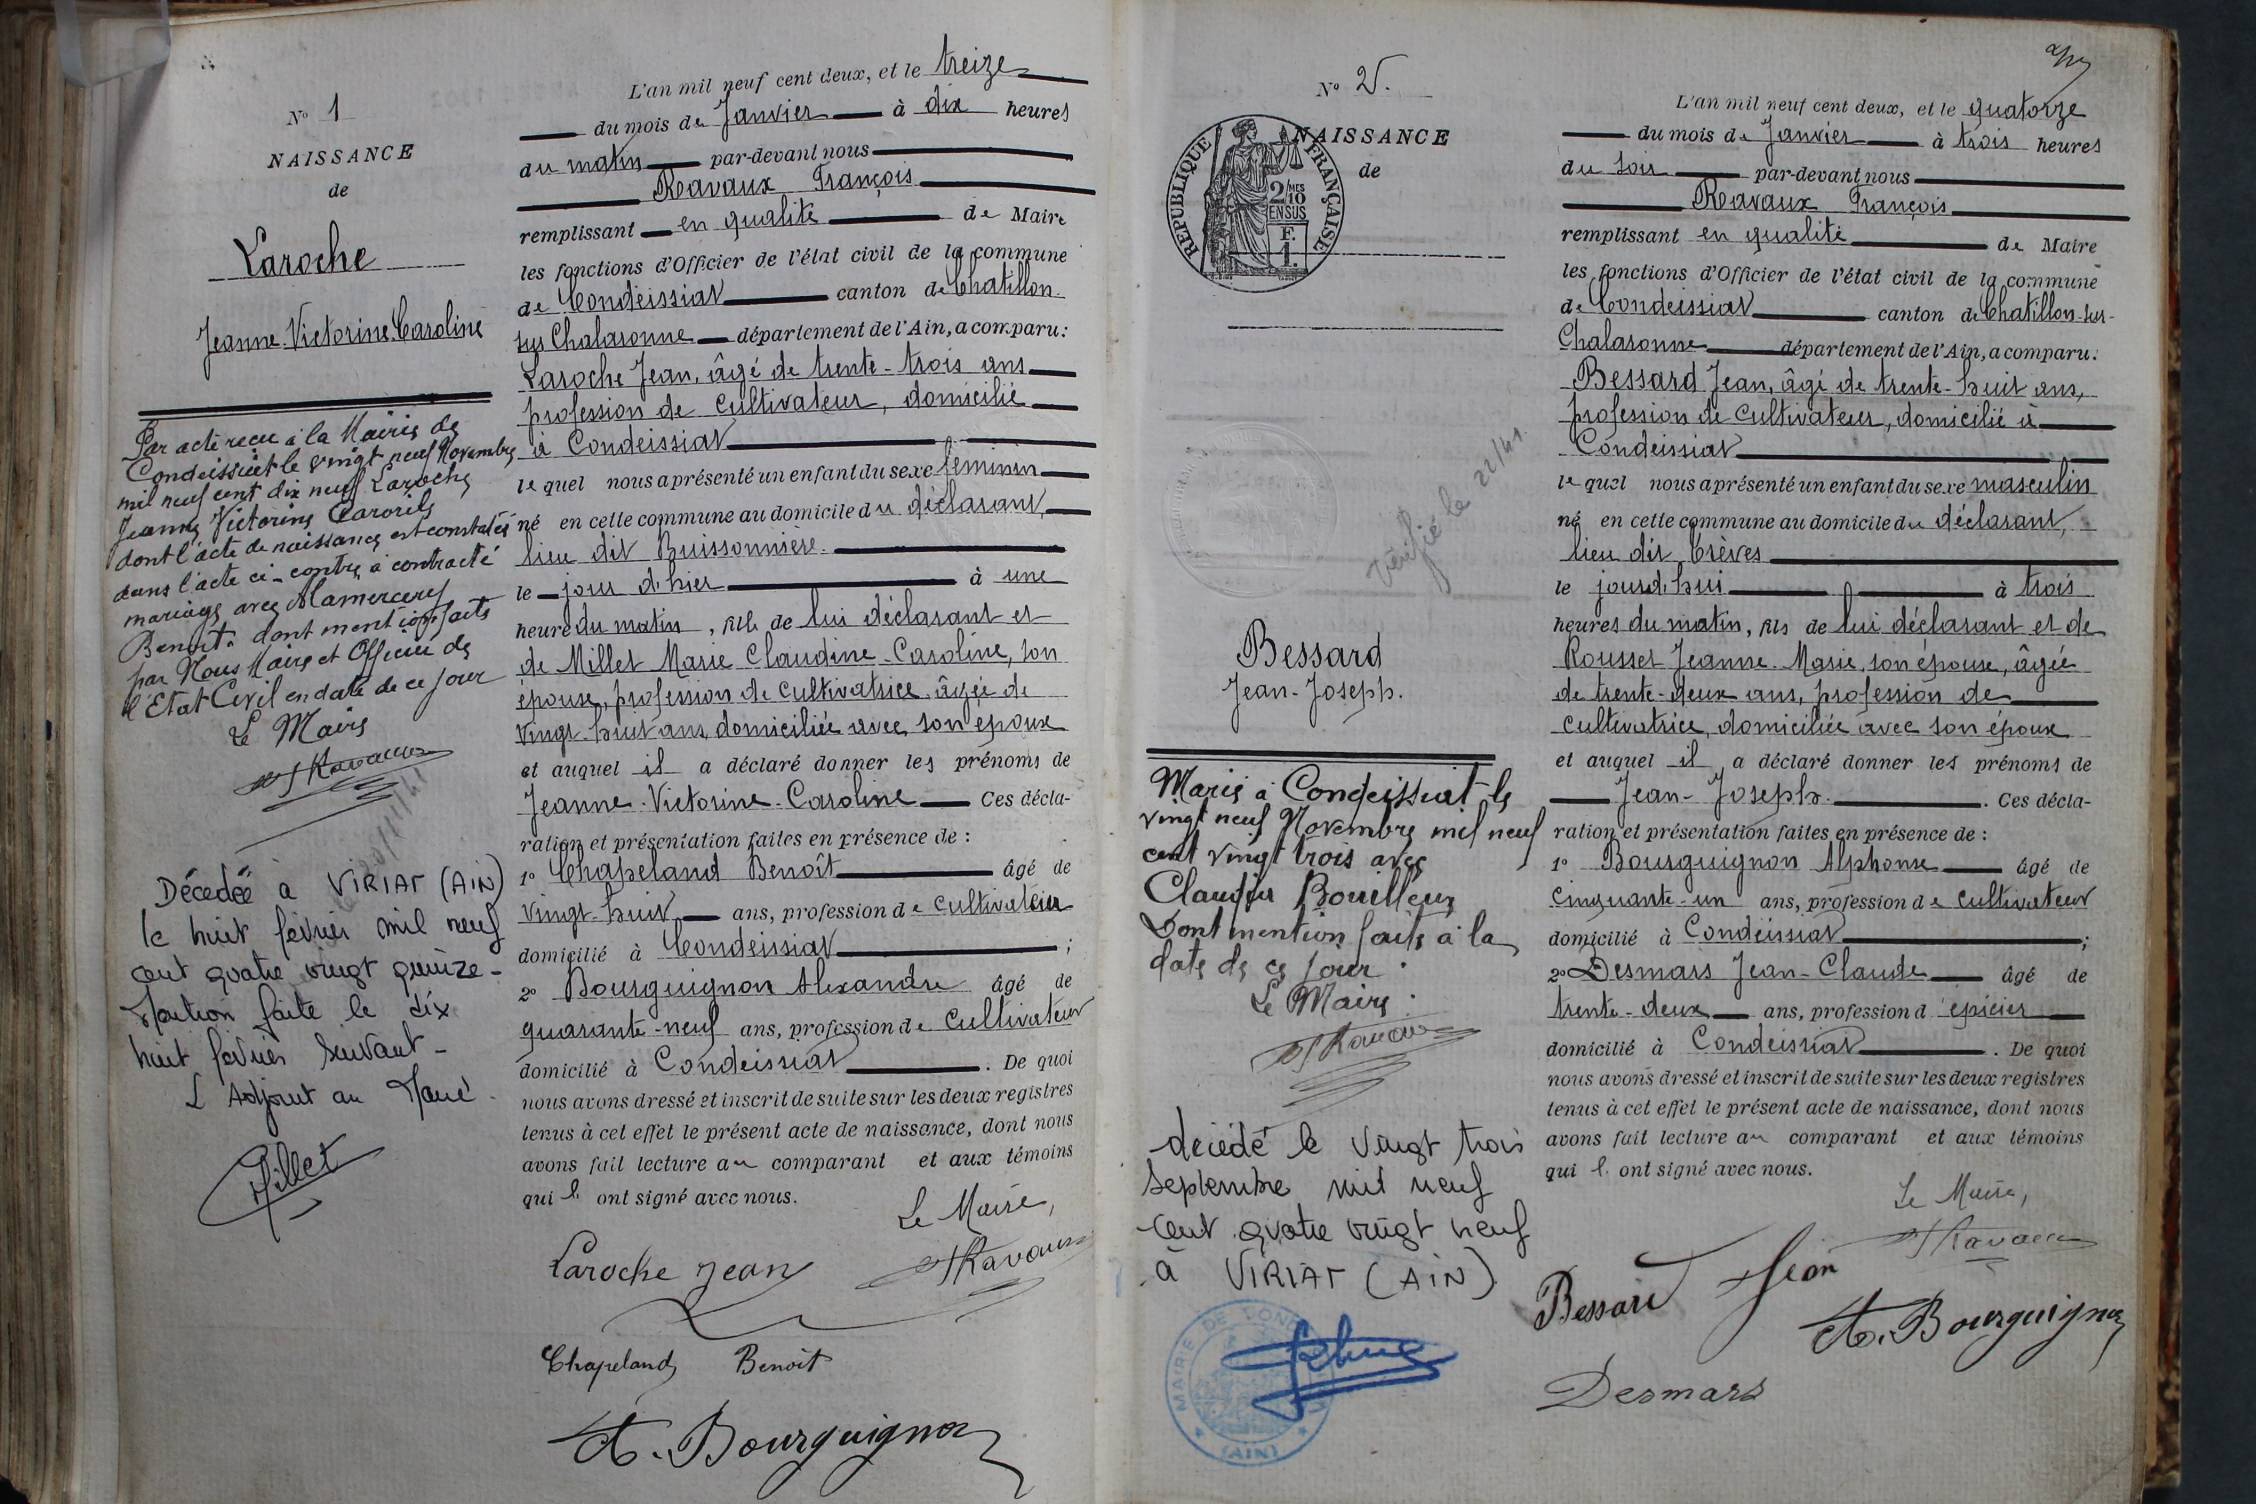 N° 1
NAISSANCE
de
Laroche
Jeanne-Victorine-Caroline
Par acte reçu à la Mairie de
Condeissiat le vingt neuf Novembre
mil neuf cent dix neuf Laroche
Jeanne Victorine
dont l'acte de naissance est constatée
dans l'acte ci-contre à contracté
mariage avec Mamercery
Benoit. dont mention faite
par Nous Maire et Officier de
l'Etat Civil en date de ce jour
Le Maire
Ravaux
Décedéé à VIRIAT (AIN)
le huit fevrier mil neuf
cent quatre vingt quinze-
Mention faite le dix
huit fevrier suivant-
L'Adjoint au Maire.
L'an mil neuf cent deux, et le treize
du mois de Janvier à dix heures
du matin par-devant nous
Ravaux François
remplissant en qualité de Maire
les fonctions d'Officier de l'état civil de la commune
de Condeissiat canton de Chatillon-
sus Chalaronne département de l'Ain, a comparu:
Laroche Jean, âgé de trente-trois ans
profession de cultivateur, domicilié
à Condeissiat
le quel nous a présenté un enfant du sexe féminin
né en cette commune au domicile du déclarant,
lieu dit Buissonnière.
le jour d'hier à une
heure du matin, fille de lui déclarant et
de Millet Marie Claudine-Caroline, son
épouse, profession de cultivatrice âgée de
vingt-huit ans, domiciliée avec son époux
et auquel il a déclaré donner les prénoms de
Jeanne-Victorine-Caroline Ces décla-
ration et présentation faites en présence de :
1° Chapeland Benoît âgé de
vingt-huit ans, profession de cultivateur
domicilié à Condeissiat ;
2° Bourguignon Alexandre âgé de
quarante-neuf ans, profession de cultivateur
domicilié à Condeissiat. De quoi
nous avons dressé et inscrit de suite sur les deux registres
tenus à cet effet le présent acte de naissance, dont nous
avons fait lecture au comparant et aux témoins
qui l. ont signé avec nous.
Le Maire,
Laroche Jean Ravaux
Chapeland Benoit
A. Bourguignon
N° 2.
NAISSANCE
de
RÉPUBLIQUE FRANÇAISE
2/10 MES
EN SUS
F.
1.
vérifié le 22/41.
Bessard
Jean-Joseph.
Marié à Condeissiat le
vingt neuf Novembre mil neuf
cent vingt trois avec
Bouilleux
Dont mention faite à la
date de ce jour.
Le Maire.
Ravaux
decédé le vingt trois
septembre mil neuf
cent quatre vingt neuf
à VIRIAT (AIN)
MAIRIE DE
(AIN)
L'an mil neuf cent deux, et le quatorze
du mois de Janvier à trois heures
du soir par-devant nous
Ravaux François
remplissant en qualité de Maire
les fonctions d'Officier de l'état civil de la commune
de Condeissiat canton de Chatillon-sur-
Chalaronne département de l'Ain, a comparu:
Bessard Jean, âgé de trente-huit ans,
profession de cultivateur, domicilié à
Condeissiat
le quel nous a présenté un enfant du sexe masculin
né en cette commune au domicile du déclarant,
lieu dit Crèves
le jourd'hui à trois
heures du matin, fils de lui déclarant et de
Rousset Jeanne-Marie, son épouse, âgée
de trente-deux ans, profession de
cultivatrice, domiciliée avec son époux
et auquel il a déclaré donner les prénoms de
Jean-Joseph. Ces décla-
ration et présentation faites en présence de :
1° Bourguignon Alphonse âgé de
cinquante-un ans, profession de cultivateur
domicilié à Condeissiat ;
2° Desmars Jean-Claude âgé de
trente-deux ans, profession d'épicier
domicilié à Condeissiat. De quoi
nous avons dressé et inscrit de suite sur les deux registres
tenus à cet effet le présent acte de naissance, dont nous
avons fait lecture au comparant et aux témoins
qui l. ont signé avec nous.
Le Maire,
Ravaux
Bessard Jean
A. Bourguignon
Desmars